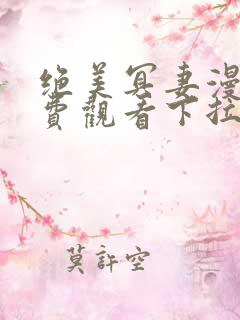 绝美冥妻漫
費觀看下拉
莫許空